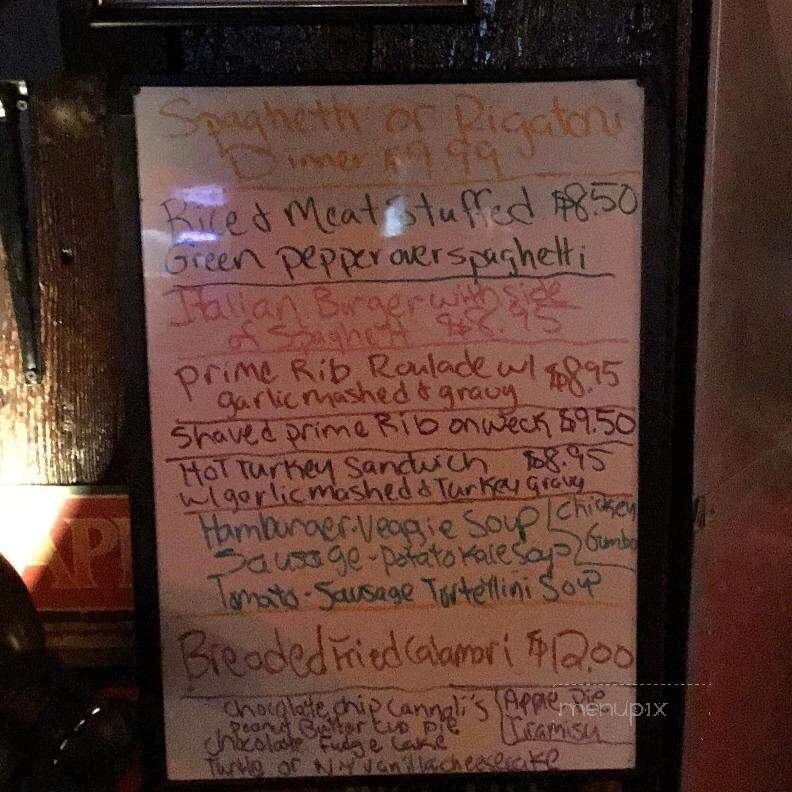 Spaghetti or Rigatoni
Dinner $9.99
Rice & Meat Stuffed $8.50
Green pepper over spaghetti
Italian Burger with side
of Spaghetti $8.95
prime Rib Roulade w/ $8.95
garlic mashed & gravy
Shaved prime Rib on weck $9.50
Hot Turkey Sandwich $8.95
w/ garlic mashed & Turkey Gravy
Hamburger-Veggie Soup Chicken
Sausage-Potato Kale Soup Gumbo
Tomato-Sausage Tortellini Soup
Breaded Fried Calamari $12.00
chocolate chip Cannoli's Apple Pie
Peanut Butter Cup Pie Tiramisu
chocolate Fudge Cake
Turtle or N.Y Vanilla cheesecake
menupix
AP